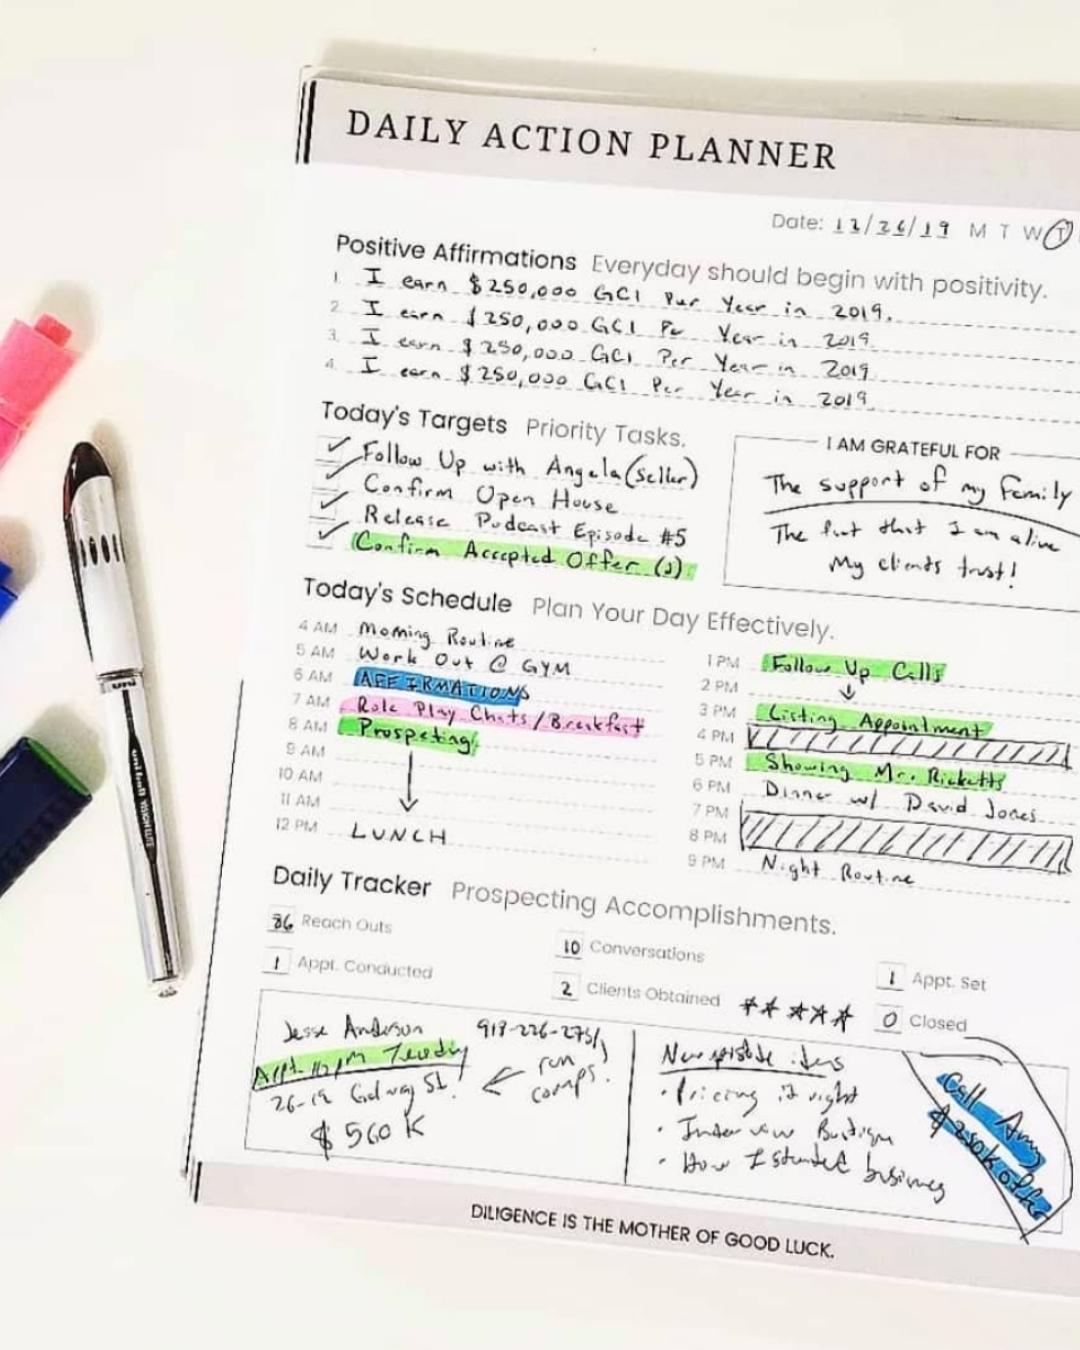 DAILY ACTION PLANNER
Date: 12/26/19 M T W T
Positive Affirmations Everyday should begin with positivity.
1. I earn $250,000 GCI Per Year in 2019.
2. I earn $250,000 GCI Per Year in 2019.
3. I earn $250,000 GCI Per Year in 2019
4. I earn $250,000 GCI Per Year in 2019.
Today's Targets Priority Tasks.
Follow Up with Angela (Seller)
Confirm Open House
Release Podcast Episode #5
Confirm Accepted Offer (2).
I AM GRATEFUL FOR
The support of my Family
The fact that I am alive
My clients trust!
Today's Schedule Plan Your Day Effectively.
4 AM Morning Routine
5 AM Work Out @ GYM
6 AM AFFIRMATIONS
7 AM Role Play Chats/Breakfast
8 AM Prospecting
9 AM
10 AM
11 AM
12 PM LUNCH
1 PM Follow Up Calls
2 PM
3 PM Listing Appointment
4 PM
5 PM Showing Mr. Ricketts
6 PM Dinner w/ David Jones
7 PM
8 PM
9 PM Night Routine
Daily Tracker Prospecting Accomplishments.
36 Reach Outs
10 Conversations
1 Appt. Set
1 Appt. Conducted
2 Clients Obtained
0 Closed
Jesse Anderson
Appt. PM Tuesday
run
comps.
$560K
New episode ideas
• Pricing it right
• Interview
• How I started business
Call Amy
$250K offer
DILIGENCE IS THE MOTHER OF GOOD LUCK.
uni
uni-ball VISION ELITE